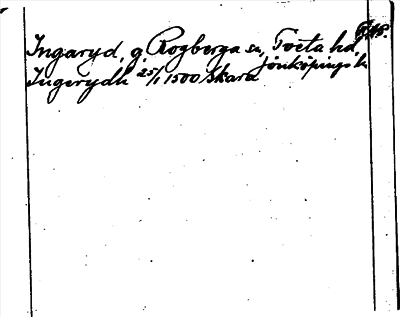 Ingaryd, g. Rogberga sn, Tveta hd,
Jönköpings l.
Ingerydh 25/1 1500 Skara